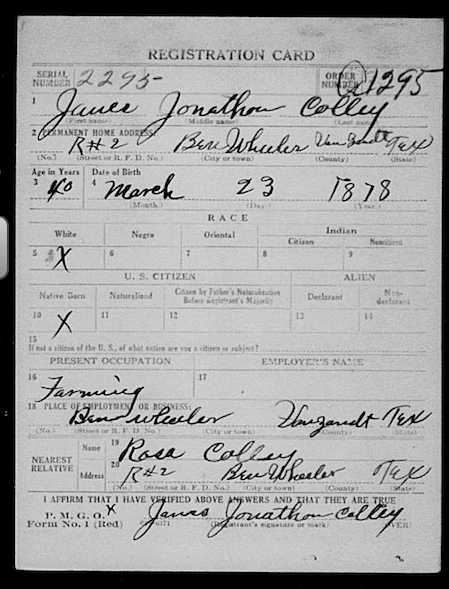 REGISTRATION CARD
SERIAL NUMBER 2295 ORDER NUMBER 1295
1 James Jonathon Colley
(First name) (Middle name) (Last name)
2 PERMANENT HOME ADDRESS:
R#2 Ben Wheeler Van Zandt Tex
(No.) (Street or R. F. D. No.) (City or town) (County) (State)
Age in Years Date of Birth
3 40 4 March 23 1878
(Month.) (Day.) (Year.)
RACE
White Negro Oriental Indian
Citizen Noncitizen
5 X 6 7 8 9
U. S. CITIZEN ALIEN
Native Born Naturalized Citizen by Father's Naturalization Before Registrant's Majority Declarant Non-declarant
10 X 11 12 13 14
15
If not a citizen of the U. S., of what nation are you a citizen or subject?
PRESENT OCCUPATION EMPLOYER'S NAME
16 Farming 17
18 PLACE OF EMPLOYMENT OR BUSINESS:
Ben Wheeler Vanzandt Tex
(No.) (Street or R. F. D. No.) (City or town) (County) (State)
NEAREST RELATIVE Name 19 Rosa Colley
Address 20 R#2 Ben Wheeler Tex
(No.) (Street or R. F. D. No.) (City or town) (County) (State)
I AFFIRM THAT I HAVE VERIFIED ABOVE ANSWERS AND THAT THEY ARE TRUE
P. M. G. O. X James Jonathon Colley
Form No. 1 (Red) (Registrant's signature or mark) (OVER)